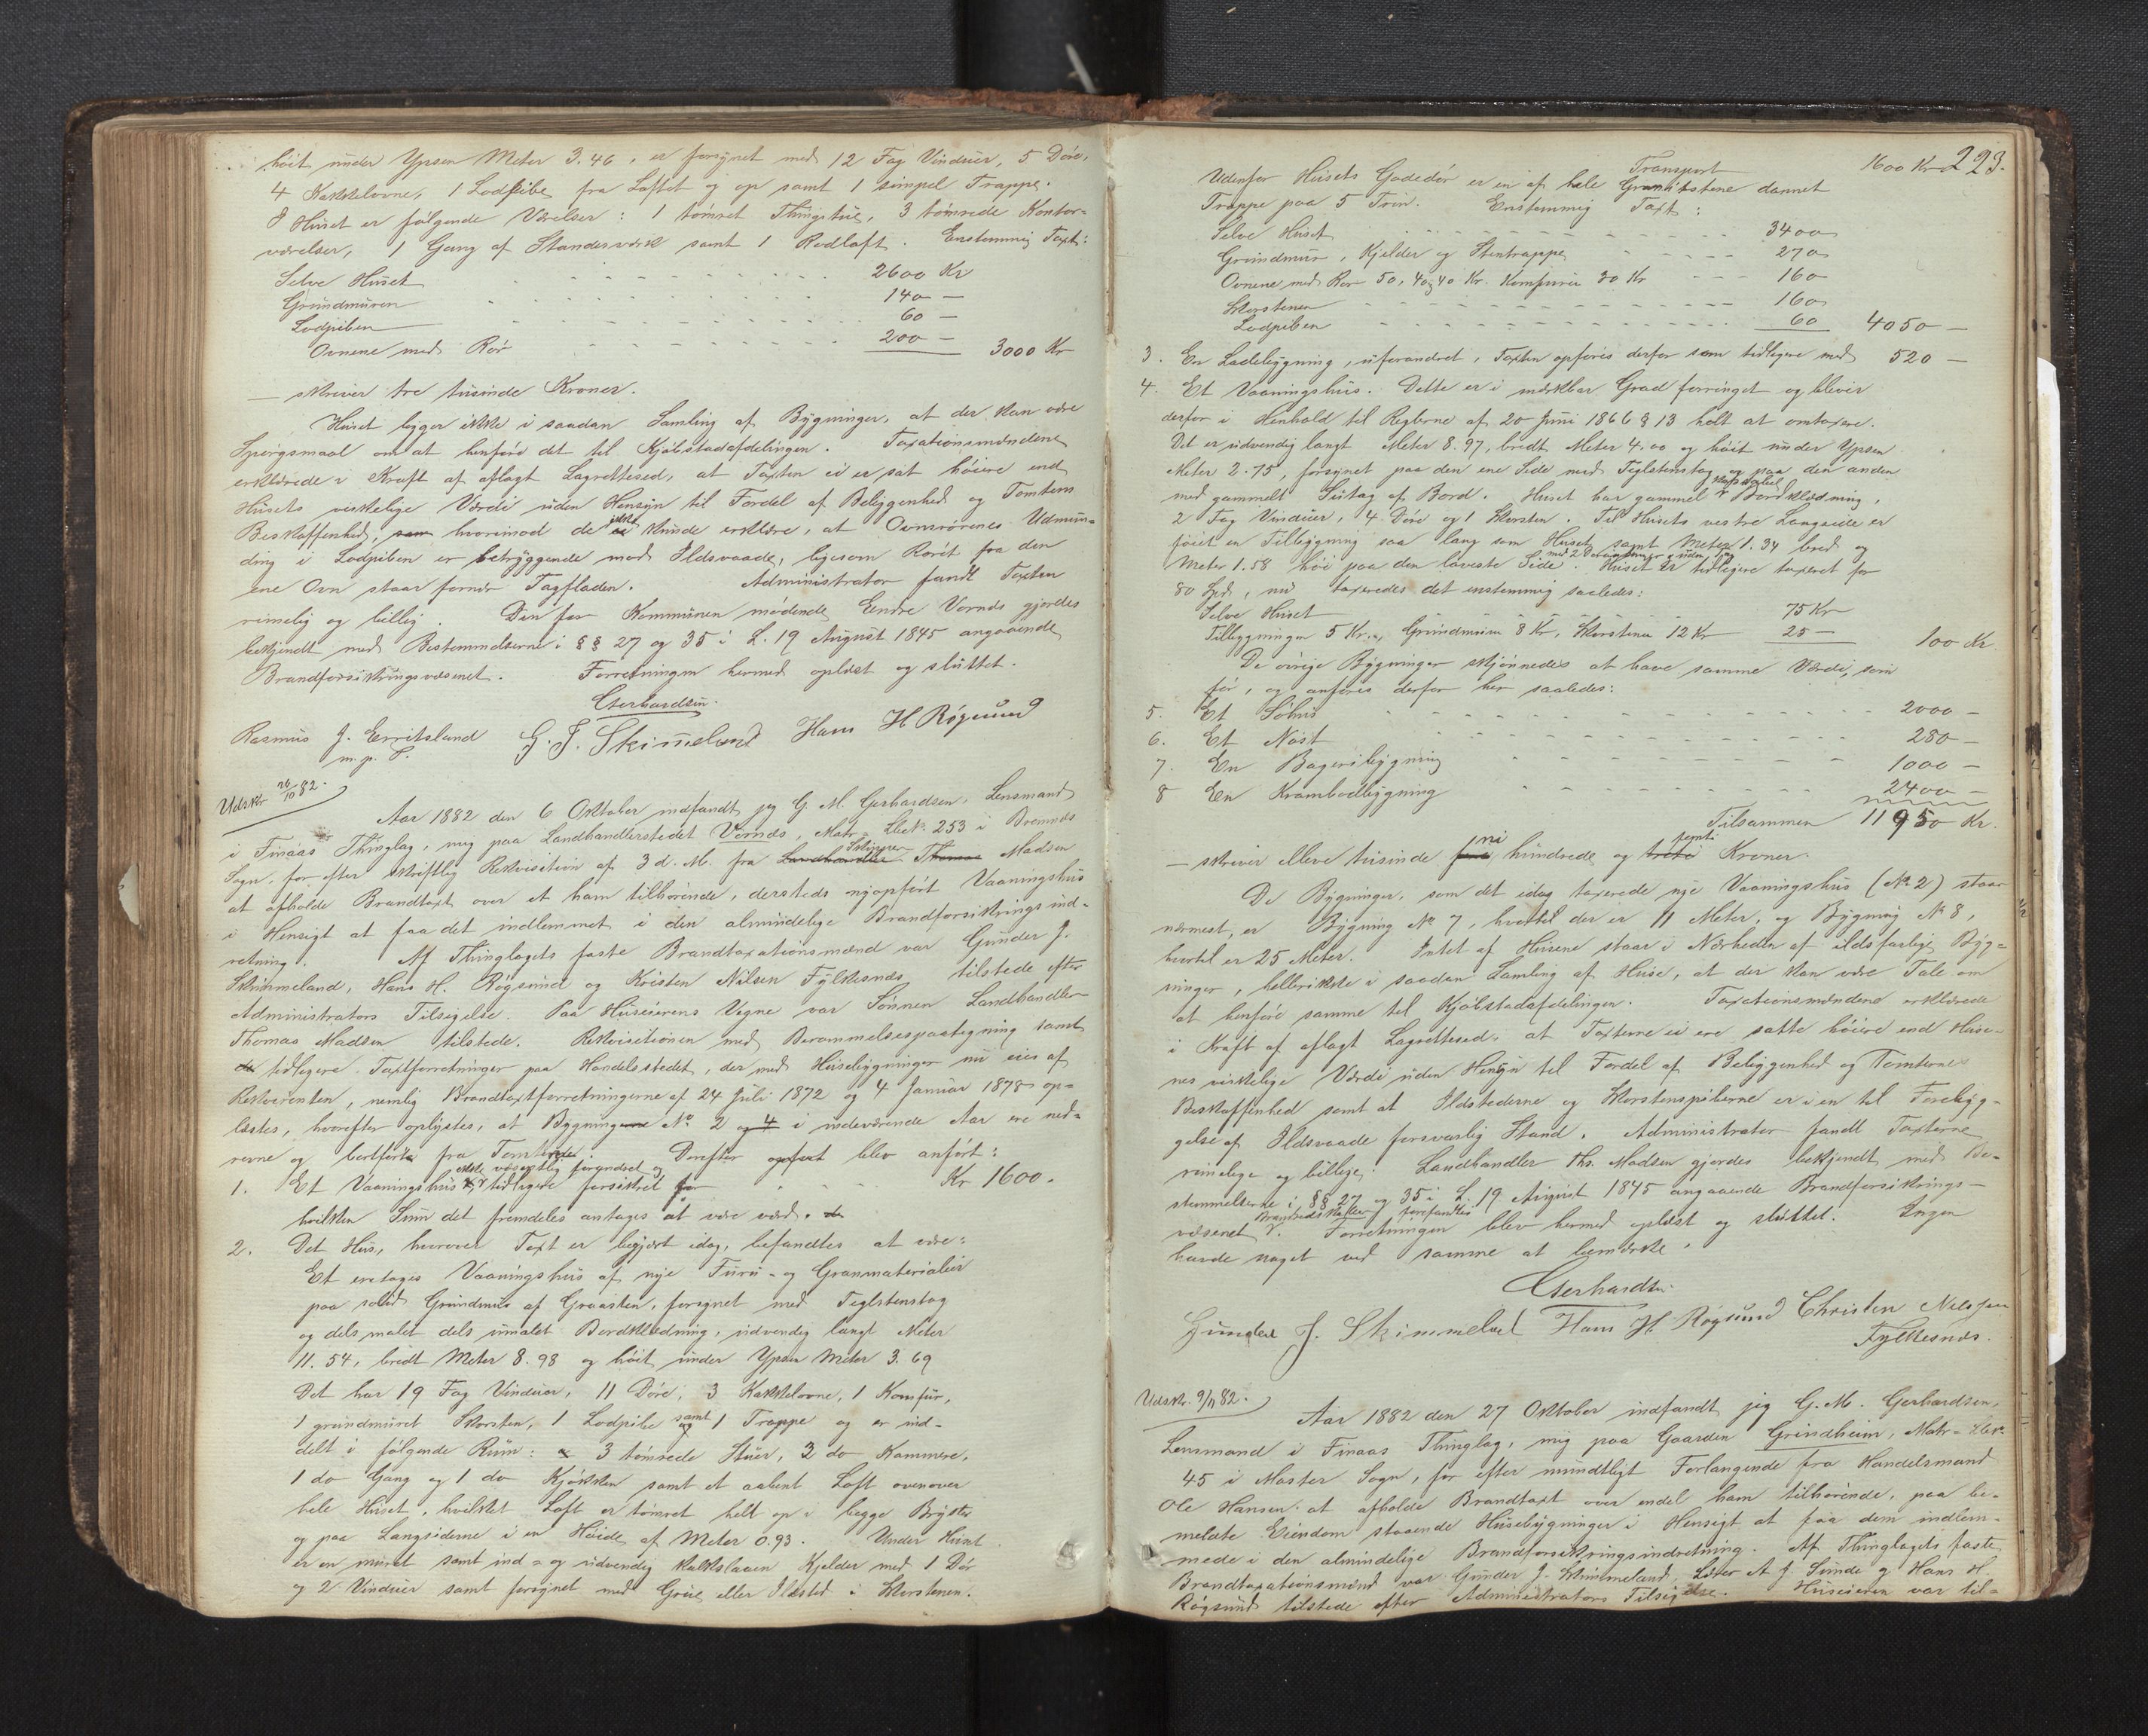 høit under Ypsen Meter 3.46, er forsynet med 12 Fag Vinduer, 5 Døre,
4 Kakkelovne, 1 Lodpibe fra Loftet og op samt 1 simpel Trappe.
I Huset er følgende Værelser: 1 tømret Thingstue, 3 tømrede Kontor-
værelser, 1 Gang af Standerværk samt 1 Rodloft. Enstemmig Taxt:
Selve Huset 2600 Kr
Grundmuren 140 —
Lodpiben 60 —
Ovnene med Rør 200 — 3000 Kr
— skriver tre tusinde Kroner.
Huset ligger ikke i saadan Samling af Bygninger, at der kan være
Spørgsmaal om at henføre det til Kjøbstadafdelingen. Taxationsmændene
erklærede i Kraft af aflagt Lagrettesed, at Taxten ei er sat høiere end
Husets virkelige Værdi uden Hensyn til Fordel af Beliggenhed og Tomtens
Beskaffenhed, som hvorimod de ikke kunde erklære, at Ovnsrørenes Udmun-
ding i Lodpiben er betryggende mod Ildsvaade, ligesom Røret fra den
ene Ovn staar fornær Tagfladen. Administrator fandt Taxten
rimelig og billig. Den for Kommunen mødende Endre Vernæs gjordes
bekjendt med Bestemmelserne i §§ 27 og 35 i L. 19 August 1845 angaaende
Brandforsikringsvæsenet. Forretningen hermed oplæst og sluttet.
Gerhardsen.
Rasmus J. Erritsland G. J. Skimmeland Hans H Røgsund
m. p. P.
Udskr 26/10 82.
Aar 1882 den 6 Oktober indfandt jeg G. M. Gerhardsen, Lensmand
i Finaas Thinglag, mig paa Landhandlerstedet Vernæs, Matr-Løbe No 253 i Bremnæs
Sogn, for efter skriftlig Rekvisition af 3 d. M. fra Landhandler Skipper Thomas Madsen
at afholde Brandtaxt over et ham tilhørende, dersteds nyopført Vaaningshus
i Hensigt at faa det indlemmet i den almindelige Brandforsikringsind-
retning. Af Thinglagets faste Brandtaxationsmænd var Gunder J.
Skimmeland, Hans H. Røgsund og Kristen Nilsen Fylkesnæs tilstede efter
Administrators Tilsigelse. Paa Huseierens Vegne var Sønnen Landhandler
Thomas Madsen tilstede. Rekvisitionen med Berammelsespaategning samt
de tidligere Taxtforretninger paa Handelsstedet, der med Husebygninger nu eies af
Rekvirenten, nemlig Brandtaxtforretningerne af 24 Juli 1872 og 4 Januar 1878 op-
læstes, hvorefter oplystes, at Bygningerne No 2 og 4 i indeværende Aar ere ned-
revne og bortførte fra Tomterne. Derefter opført blev anført:
1. Et Vaaningshus, ikke væsentlig forandret og tidligere forsikret for Kr 1600.
hvilken Sum det fremdeles antages at være værd. de
2. Det Hus, hvorover Taxt er begjært idag, befandtes at være:
Et enetages Vaaningshus af nye Furu- og Granmaterialier
paa solid Grundmur af Graasten, forsynet med Teglstenstag
og dels malet dels umalet Bordklædning, udvendig langt Meter
11.54, bredt Meter 8.98 og høit under Ypsen Meter 3.69
Det har 19 Fag Vinduer, 11 Døre, 3 Kakkelovne, 1 Komfur,
1 grundmuret Skorsten, 1 Lodpibe samt 1 Trappe og er ind-
delt i følgende Rum: 3 tømrede Stuer, 2 do Kammere,
1 do Gang og 1 do Kjøkken samt et aabent Loft ovenover
hele Huset, hvilket Loft er tømret helt op i begge Bryster
og paa Langsiderne i en Høide af Meter 0.93. Under Huset
er en muret samt ind- og udvendig kalkslagen Kjelder med 1 Dør
og 2 Vinduer samt forsynet med Grue eller Ildsted i Skorstenen.
Transport 1600 Kr 223.
Udenfor Husets Gadedør er en af hele Granitstene dannet
Trappe paa 5 Trin. Enstemmig Taxt:
Selve Huset 3400
Grundmur, Kjelder og Stentrappe 270
Ovnene med Rør 50, 40 og 40 Kr. Komfuren 30 Kr 160
Skorstenen 160
Lodpiben 60 4050 —
3. En Ladebygning, uforandret, Taxten opføres derfor som tidligere med 520 —
4. Et Vaaningshus. Dette er i mærkbar Grad forringet og blever
derfor i Henhold til Reglerne af 20 Juni 1866 § 13 holt at omtaxere.
Det er udvendig langt Meter 8.97, bredt Meter 4,00 og høit under Ypsen
Meter 2.75, forsynet paa den ene Side med Teglstenstag og paa den anden
med gammelt Sutag af Bord. Huset har gammel Bordklædning,
2 Fag Vinduer, 4 Døre og 1 Skorsten. Til Husets vestre Langside er
føiet en Tilbygning saa lang som Huset samt Meter 1.34 bred og
Meter 1.58 høi paa den laveste Side. Huset er tidligere taxeret for
80 Spd, nu taxeredes det enstemmig saaledes:
Selve Huset 75 Kr
Tilbygningen 5 Kr., Grundmuren 8 Kr, Skorstenen 12 Kr 25 — 100 Kr
De øvrige Bygninger skjønnedes at have samme Værdi, som
før, og anføres derfor her saaledes:
5. Et Søhus 2000 —
6. Et Nøst 280 —
7. En Bageribygning 1000 —
8 En Krambodbygning 2400 —
Tilsammen 11950 Kr.
— skriver elleve tusinde ni hundrede og femti Kroner.
De Bygninger, som det idag taxerede nye Vaaningshus (No 2) staar
nærmest, er Bygning No 7, hvortil der er 11 Meter, og Bygning No 8,
hvortil er 25 Meter. Intet af Husene staar i Nærheden af ildsfarlige Byg-
ninger, hellerikke i saadan Samling af Huse, at der kan være Tale om
at henføre samme til Kjøbstadafdelingen. Taxationsmændene erklærede
i Kraft af aflagt Lagrettesed, at Taxterne ei ere satte høiere end Huse-
nes virkelige Værdi uden Hensyn til Fordel af Beliggenhed og Tomternes
Beskaffenhed samt at Ildstederne og Skorstenspiberne er i en til Forebyg-
gelse af Ildsvaade forsvarlig Stand. Administrator fandt Taxterne
rimelige og billige. Landhandler Ths. Madsen gjordes bekjendt med Be-
stemmelserne i §§ 27 og 35 i L. 19 August 1845 angaaende Brandforsikrings-
væsenet. Brandredskaber forefandtes Forretningen blev hermed oplæst og sluttet. Ingen
havde noget ved samme at bemærke.
Gerhardsen
Gunder J. Skimmeland Hans H. Røgsund Christen Nielsen
Fylkesnæs.
Udskr. 9/11 82.
Aar 1882 den 27 Oktober indfandt jeg G. M. Gerhardsen,
Lensmand i Finaas Thinglag, mig paa Gaarden Grindheim, Matr-Løbe
45 i Moster Sogn, for efter mundtligt Forlangende fra Handelsmand
Ole Hansen at afholde Brandtaxt over endel ham tilhørende, paa be-
meldte Eiendom staaende Husebygninger i Hensigt at faa dem indlem-
mede i den almindelige Brandforsikringsindretning. Af Thinglagets faste
Brandtaxationsmænd var Gunder J. Skimmeland, A J. Sunde og Hans H.
Røgsund tilstede efter Administrators Tilsigelse. Huseieren var til-